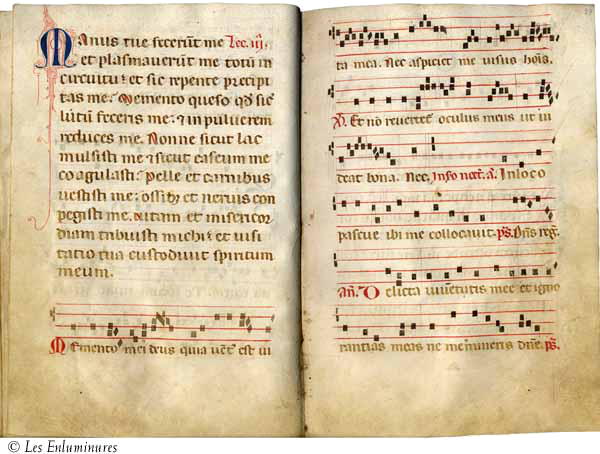 Manus tue fecerunt me Lec. iii.
et plasmaverunt me totū in
circuitu: et sic repente precipi
tas me. Memento queso qd sic
lutū feceris me: et in pulverem
reduces me. Nonne sicut lac
mulsisti me et sicut caseum me
coagulasti: pelle et carnibus
vestisti me: ossibꝫ et nervis con
pegisti me. vitam et misericor
diam tribuisti michi: et visi
tatio tua custodivit spiritum
meum.
Memento mei deus quia vent est vi
ta mea. Nec aspiciet me visus hōis.
Et nō revertet oculus meus ut vi
deat bona. Nec. In loco
pascue ibi me collocavit. ps. Dn̄s reg.
an̄. Delicta iuventutis mee et igno
rantias meas ne memineris dn̄e. ps.
© Les Enluminures